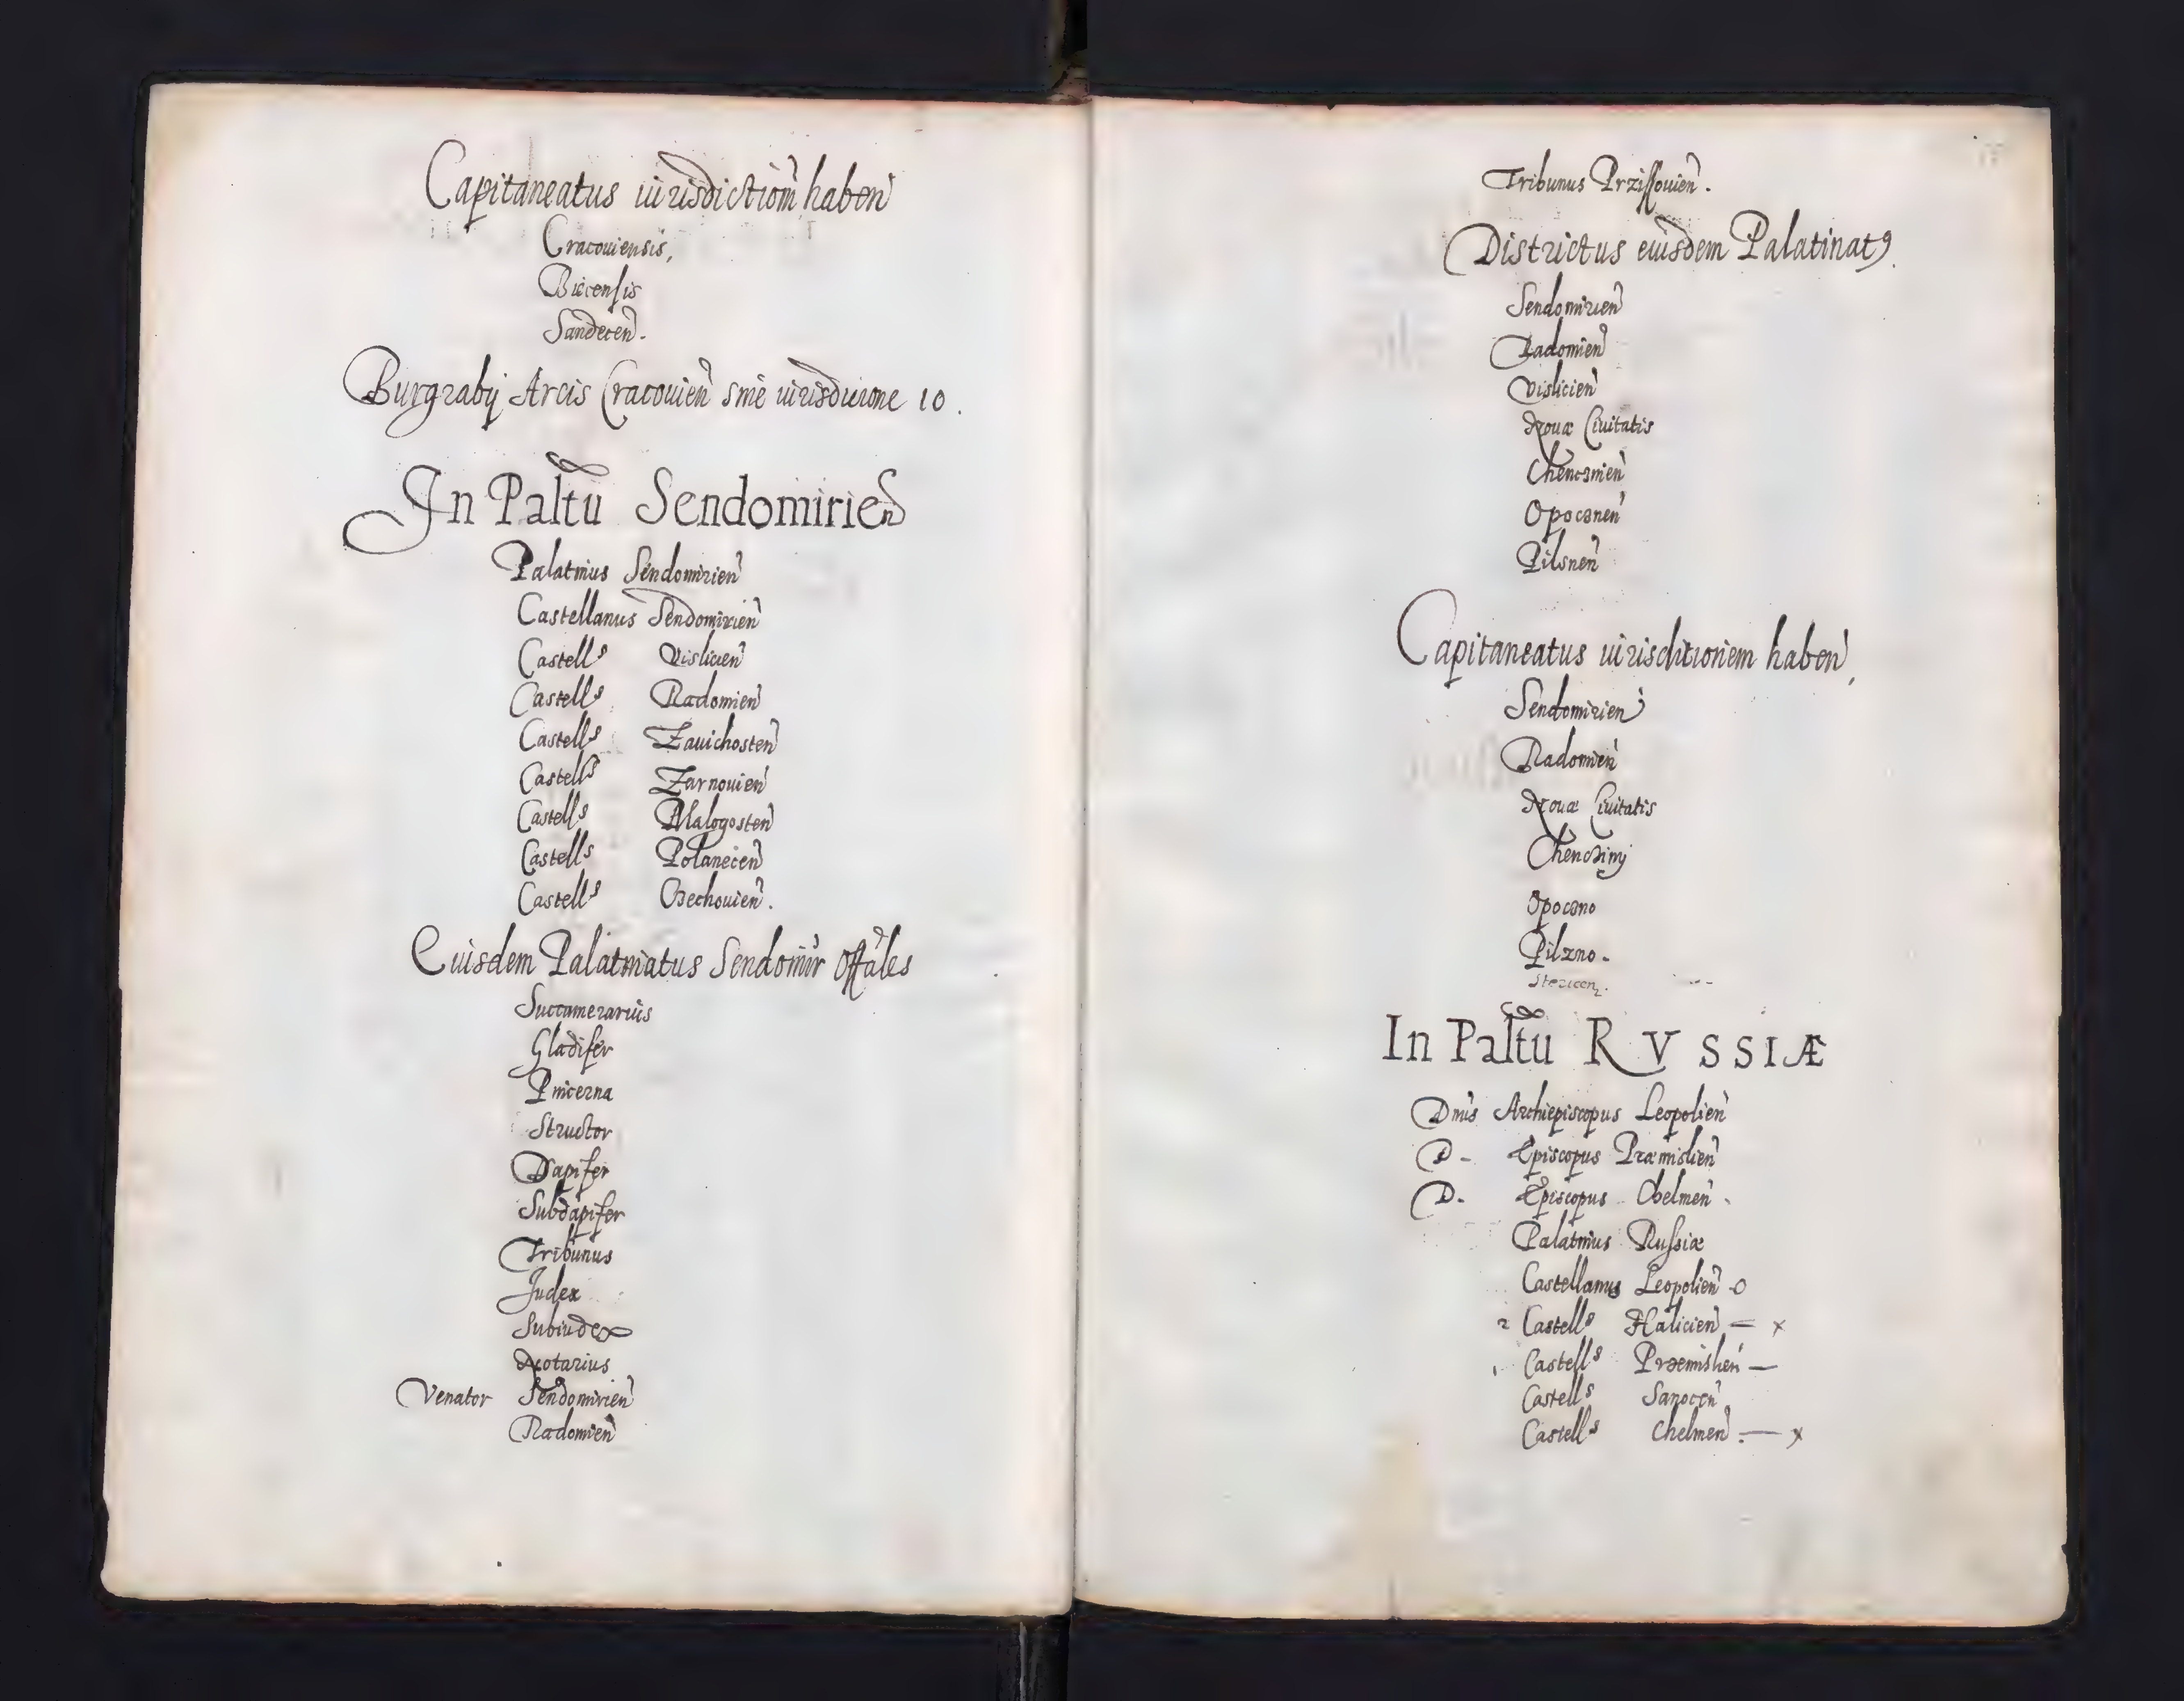 Capitaneatus iurisdictiom̃ haben̄
Cracouiensis,
Biecensis
Sandecen̄.
Burgrabij Arcis Cracouien̄ sine iurisdicione 10.
In Paltũ Sendomirien̄
Palatinus Sendomirien̄
Castellanus Sendomirien̄
Castells Vislicien̄
Castells Radomien̄
Castells Zauichosten̄
Castells Zarnouien̄
Castells Malogosten̄
Castells Polanecen̄
Castells Czechouien̄.
Euisdem Palatinatus Sendomir̄ Offāles
Succamerarius
Gladifer
Pincerna
Structor
Dapifer
Subdapifer
Tribunus
Judex
Subiudex
Notarius
Venator Sendomirien̄
Radomien̄
Tribunus Przissouien̄.
Districtus euisdem Palatinatꝰ.
Sendomirien̄
Radomien̄
Vislicien̄
Nouæ Ciuitatis
Chencinien̄
Opocznen̄
Pilsnen̄
Capitaneatus iurisditionem haben̄,
Sendomirien̄
Radomien̄
Nouæ Ciuitatis
Chencziny
Opoczno
Pilzno.
In Paltũ RVSSIÆ
Dnūs Archiepiscopus Leopolien̄
D- Episcopus Præmislien̄
D. Episcopus Chelmen̄.
Palatinus Russiæ
Castellanus Leopolien̄ -o
2 Castells Halicien̄ — x
1. Castells Præmislien̄ —
Castells Sanocen̄
Castells Chelmen̄ . — x